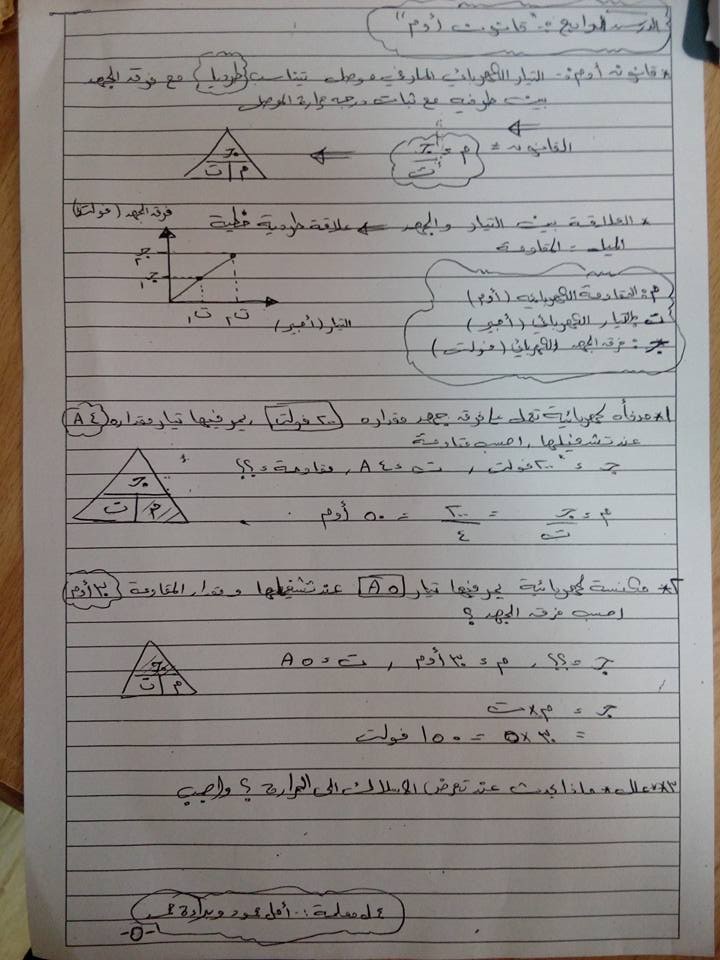 الدرس الرابع :- "قانون أوم"
* قانون أوم :- التيار الكهربائي المار في موصل يتناسب طرديا مع فرق الجهد
بين طرفيه مع ثبات درجه حرارة الموصل
القانون = م = جـ / ت
جـ
ت م
* العلاقة بين التيار والجهد ← علاقة طردية خطية
الميل = المقاومة
فرق الجهد (فولت)
جـ٢
جـ١
ت١ ت٢
التيار (أمبير)
م : المقاومة الكهربائية (أوم)
ت : التيار الكهربائي (أمبير)
جـ : فرق الجهد الكهربائي (فولت)
١* مدفأه كهربائية تعمل على فرق جهد مقداره ٢٠٠ فولت ، يمر فيها تيار مقداره ٤ A
عند تشغيلها ، احسب مقاومة
جـ = ٢٠٠ فولت ، ت = ٤ A ، مقاومة = ؟؟
جـ
ت م
م = جـ / ت = ٢٠٠ / ٤ = ٥٠ أوم
٢* مكنسة كهربائية يمر فيها تيار ٥ A عند تشغيلها ومقدار المقاومة ٣٠ أوم
احسب فرق الجهد ؟
جـ = ؟؟ ، م = ٣٠ أوم ، ت = ٥ A
جـ
ت م
جـ = م × ت
= ٣٠ × ٥ = ١٥٠ فولت
٣** علل * ماذا يحدث عند تعرض الاسلاك الى الحرارة ؟ واجب
عمل معلمة :- أمل
-٥-